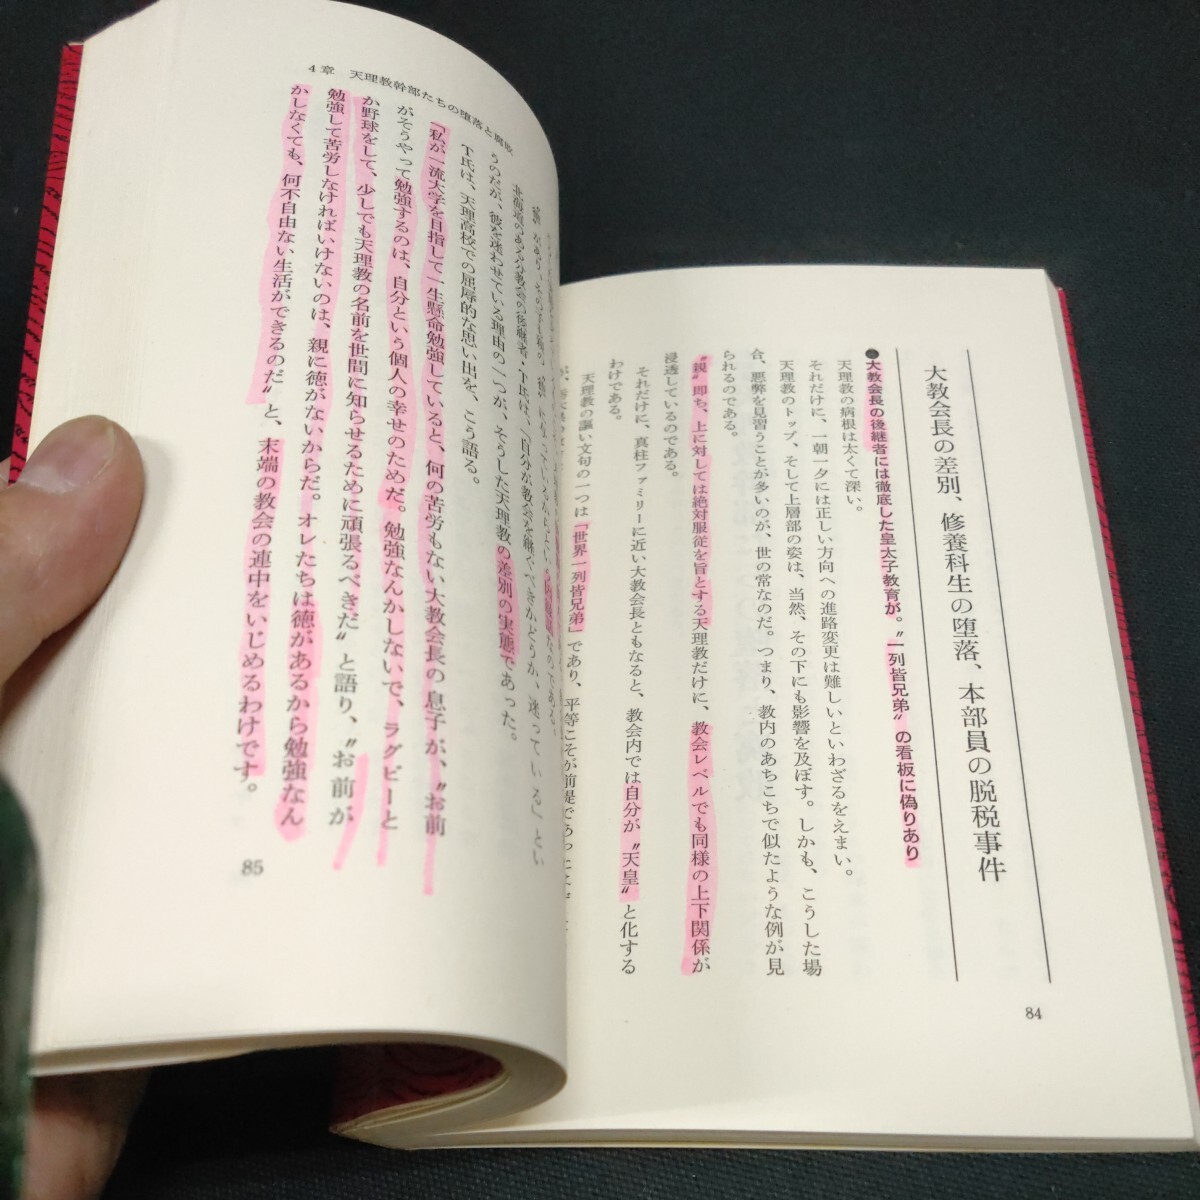 大教会長の差別、修養科生の堕落、本部員の脱税事件
●大教会長の後継者には徹底した皇太子教育が。〝一列皆兄弟〟の看板に偽りあり
天理教の病根は太くて深い。
それだけに、一朝一夕には正しい方向への進路変更は難しいといわざるをえまい。
天理教のトップ、そして上層部の姿は、当然、その下にも影響を及ぼす。しかも、こうした場
合、悪弊を見習うことが多いのが、世の常なのだ。つまり、教内のあちこちで似たような例が見
られるのである。
〝親〟即ち、上に対しては絶対服従を旨とする天理教だけに、教会レベルでも同様の上下関係が
浸透しているのである。
それだけに、真柱ファミリーに近い大教会長ともなると、教会内では自分が〝天皇〟と化する
わけである。
天理教の謳い文句の一つは「世界一列皆兄弟」であり、平等こそが前提であった
84
4章 天理教幹部たちの堕落と腐敗
北海道のある分教会の後継者・T氏は、「自分が教会を継ぐべきかどうか、迷っている」とい
うのだが、彼を迷わせている理由の一つが、そうした天理教の差別の実態であった。
T氏は、天理高校での屈辱的な思い出を、こう語る。
「私が一流大学を目指して一生懸命勉強していると、何の苦労もない大教会長の息子が、〝お前
がそうやって勉強するのは、自分という個人の幸せのためだ。勉強なんかしないで、ラグビーと
か野球をして、少しでも天理教の名前を世間に知らせるために頑張るべきだ〟と語り、〝お前が
勉強して苦労しなければいけないのは、親に徳がないからだ。オレたちは徳があるから勉強なん
かしなくても、何不自由ない生活ができるのだ〟と、末端の教会の連中をいじめるわけです。
85